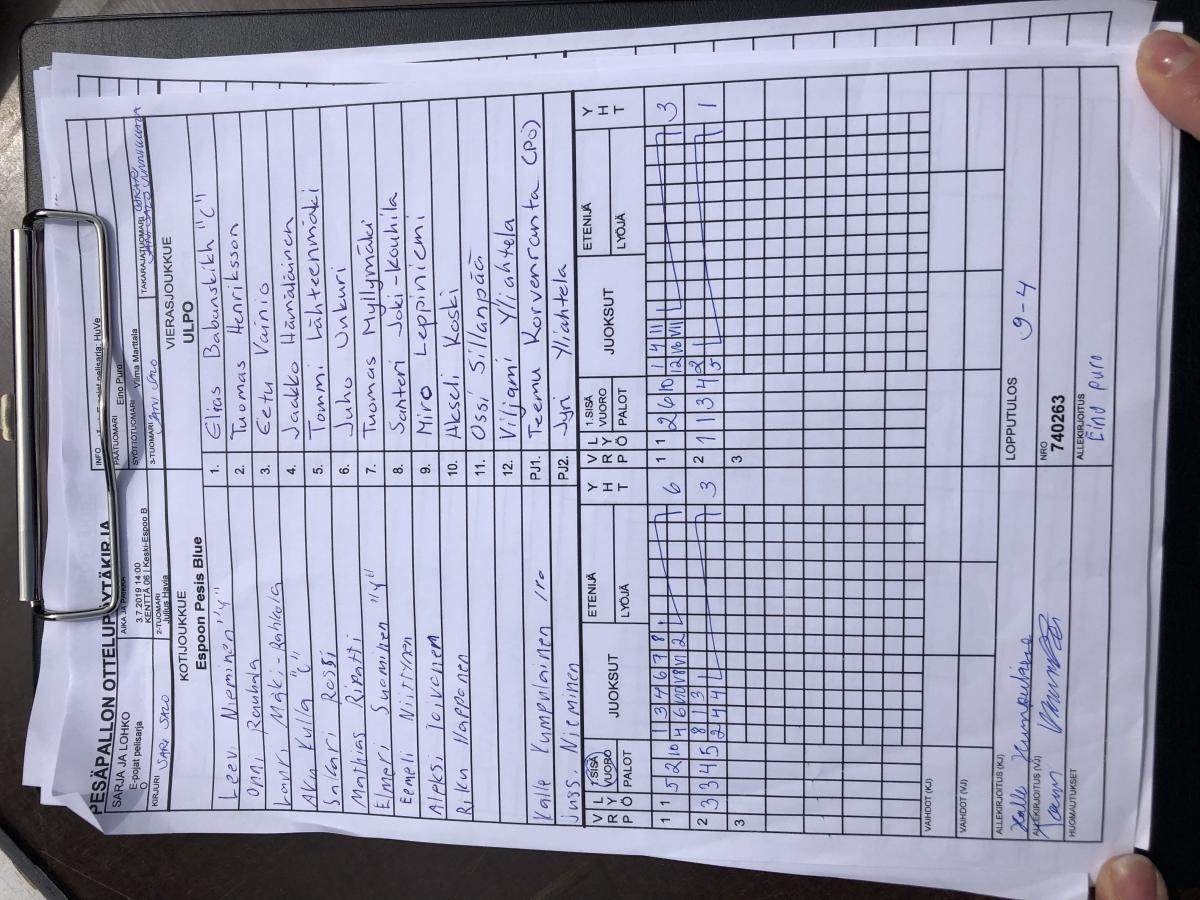 PESÄPALLON OTTELUPÖYTÄKIRJA
SARJA JA LOHKO
E-pojat pelisarja
O
AIKA JA PAIKKA
3.7.2019 14:00
KENTTÄ 06 | Keski-Espoo B
INFO pelisarja: HuVe
PÄÄTUOMARI Eino Puro
SYÖTTÖTUOMARI Vilma Marttala
KIRJURI JARI SALO
2-TUOMARI
Julius Havia
3-TUOMARI JANI SALO
TAKARAJATUOMARI
KOTIJOUKKUE
Espoon Pesis Blue
VIERASJOUKKUE
ULPO
Leevi Nieminen "V" 1. Elias Babanskikh "C"
Onni Rouhola 2. Tuomas Henriksson
Lauri Mäki-Rahkola 3. Eetu Vainio
Aku Kulla "C" 4. Jaakko Hämäläinen
Sakari Rossi 5. Tommi Lähteenmäki
Mathias Ripatti 6. Juho Unkuri
Emmeri Suominen "V" 7. Tuomas Myllymäki
Eemeli Niittynen 8. Santeri Joki-Kouhila
Aleksi Toivonen 9. Miro Leppiniemi
Riku Happonen 10. Akseli Koski
11. Ossi Sillanpää
12. Viljami Yliahtela
Kalle Kumpulainen PJ1. Teemu Korvenranta (PÖ)
Jussi Nieminen PJ2. Jyri Yliahtela
VL RY PÖ 1.SISÄ VUORO PALOT JUOKSUT ETENIJÄ LYÖJÄ YHT VL RY PÖ 1.SISÄ VUORO PALOT JUOKSUT ETENIJÄ LYÖJÄ YHT
1 1 5 2 10 1 3 4 6 7 8 6 1 1 2 6 10 1 4 11 3
4 6 10 8 11 2 12 10 11
2 3 3 4 5 8 1 3 3 2 1 1 3 4 2 1
2 4 4 5
3 3
VAIHDOT (KJ)
VAIHDOT (VJ)
ALLEKIRJOITUS (KJ)
Kalle Kumpulainen
ALLEKIRJOITUS (VJ)
HUOMAUTUKSET
LOPPUTULOS 9-4
NRO
740263
ALLEKIRJOITUS
Eino Puro